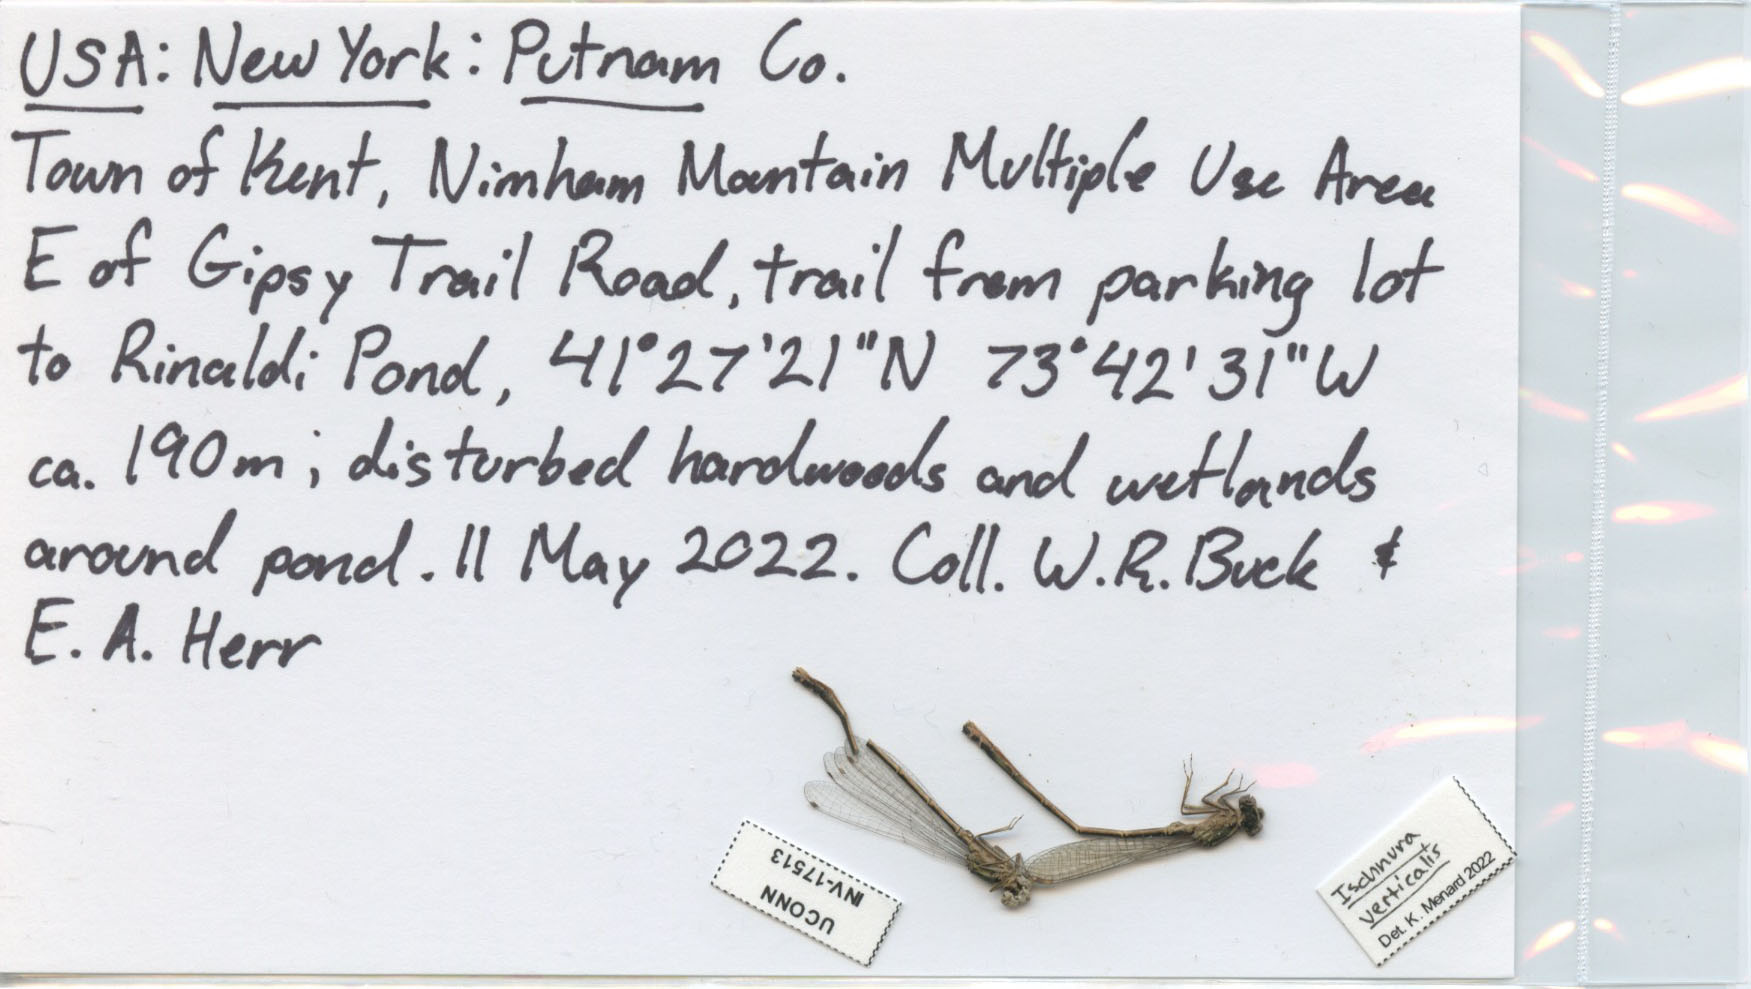 USA: New York: Putnam Co.
Town of Kent, Nimham Mountain Multiple Use Area
E of Gipsy Trail Road, trail from parking lot
to Rinaldi Pond, 41°27'21"N 73°42'31"W
ca. 190m; disturbed hardwoods and wetlands
around pond. 11 May 2022. Coll. W.R. Buck &
E. A. Herr
UCONN
INV-17513
Ischnura
verticalis
Det. K. Menard 2022